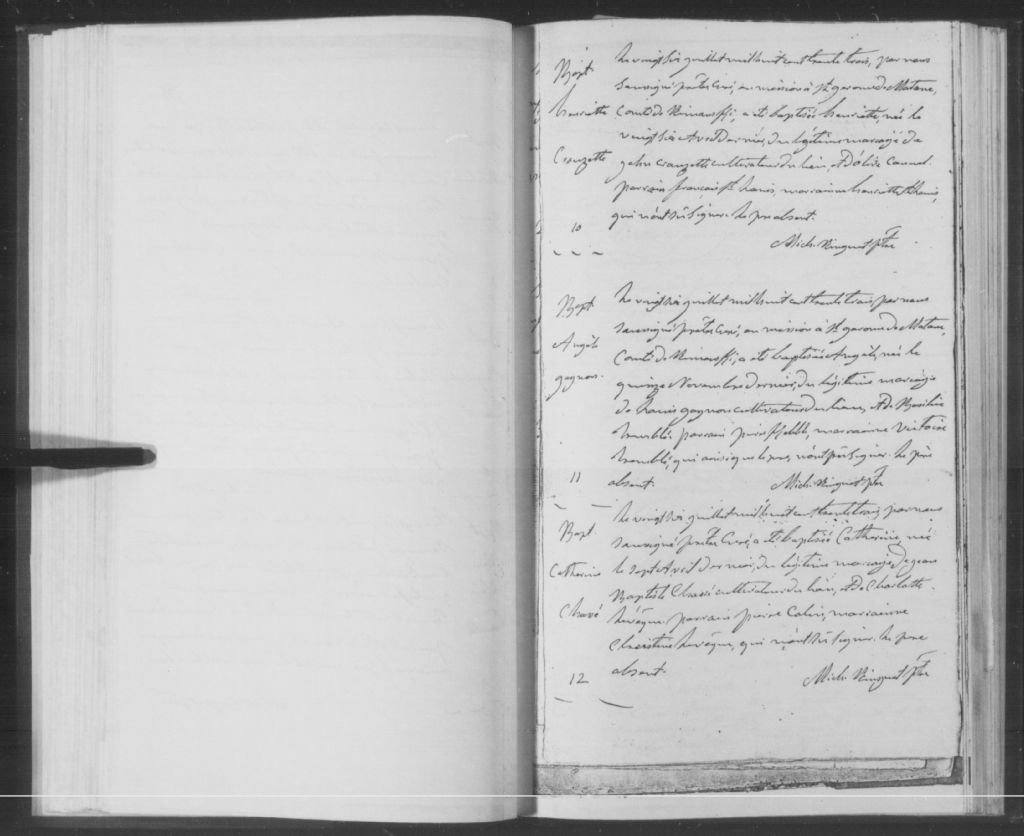 Bapt
henriette
Crouzette
10
Le vingt six juillet mil huit cent trente trois, par nous
soussigné prêtre Curé, en mission à St. gerome de Matane,
Comté de Rimouski, a été baptisée henriette, née le
vingt six Avril dernier, du légitime mariage de
Crouzette cultivateur du lieu, & D'olive Canuel.
parrain francois St. Louis, marraine henriette St. Louis,
qui n'ont sû signer. Le pere absent.
Mich. Ringuet ptre
Bapt
Angèle
gagnon.
11
Le vingt six juillet mil huit cent trente trois, par nous
soussigné prêtre Curé, en mission à St. gerome de Matane,
Comté de Rimouski, a été baptisée Angèle, née le
quinze Novembre dernier, du légitime mariage
de Louis gagnon cultivateur du lieu, & De Basilice
parrain marraine Victoire
qui ainsi que le pere, n'ont pû signer. Le père
absent.
Mich. Ringuet ptre
Bapt.
Catherine
Chavé
12
Le vingt six juillet mil huit cent trente trois, par nous
soussigné prêtre Curé, a été baptisée Catherine, née
le sept Avril dernier, du légitime mariage de jean
Baptiste Chavé cultivateur du lieu, & De Charlotte
Levêque. parrain pierre marraine
Christine Levêque, qui n'ont sû signer. Le pere
absent.
Mich. Ringuet ptre